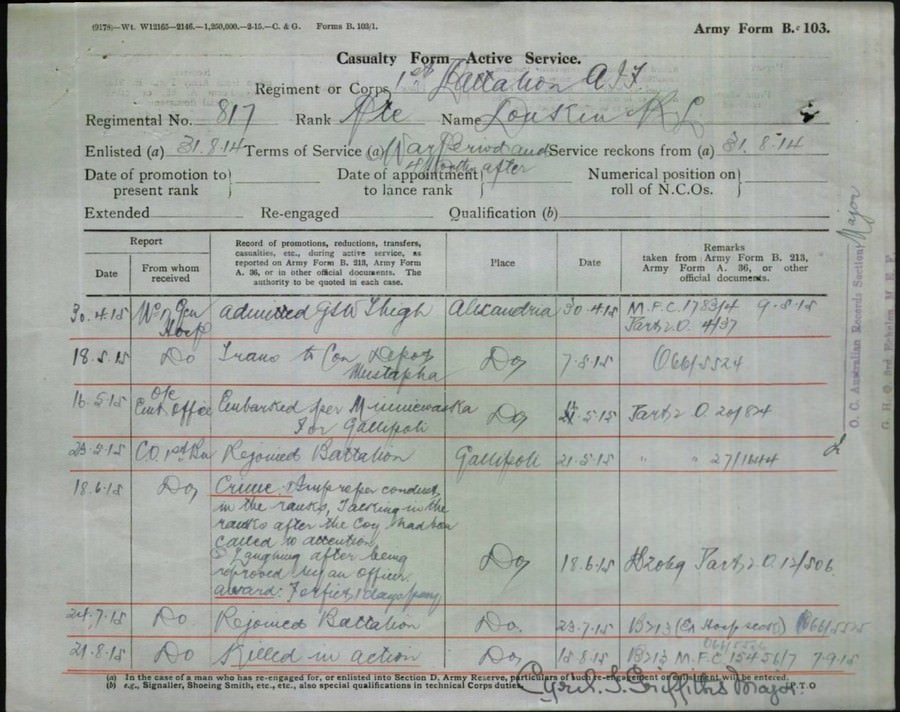 (9178)—Wt. W12165—2146.—1,250,000.—2-15.—C. & G. Forms B. 103/1.
Army Form B. 103.
Casualty Form—Active Service.
Regiment or Corps 1st Battalion A.I.F.
Regimental No. 817 Rank Pte Name Donkin R L
Enlisted (a) 31.8.14 Terms of Service (a) War Period and Service reckons from (a) 31.8.14
4 Months after
Date of promotion to present rank
Date of appointment to lance rank
Numerical position on roll of N.C.Os.
Extended Re-engaged Qualification (b)
Report
Date
From whom received
Record of promotions, reductions, transfers, casualties, etc., during active service, as reported on Army Form B. 213, Army Form A. 36, or in other official documents. The authority to be quoted in each case.
Place
Date
Remarks
taken from Army Form B. 213, Army Form A. 36, or other official documents.
30.4.15 Gen Hosp admitted GSW Thigh Alexandria 30.4.15 M.F.C. 1783/4 9.8.15
Part 2 O. 4/37
18.5.15 Do Trans to Con Depot Mustapha Do 7.5.15 O66/5524
16.5.15 o/c Emb. Office Embarked per Minniewaska for Gallipoli Do 5.15 Part 2 O. 20/84
23.5.15 C.O. 1st Bn Rejoined Battalion Gallipoli 21.5.15 " " 27/1644
18.6.15 Do Crime. Improper conduct
in the ranks, Talking in the
ranks after the Coy had been
called to attention
Laughing after being
reproved by an Officer.
award: Forfeits 1 days pay
Do 18.6.15 B2069 Part 2 O. 12/506
24.7.15 Do Rejoined Battalion Do. 23.7.15 B213 O66/5525
O66/5526
21.8.15 Do Killed in action Do 15.8.15 B213 M.F.C. 15456/7 7.9.15
(a) In the case of a man who has re-engaged for, or enlisted into Section D, Army Reserve, particulars of such re-engagement or enlistment will be entered.
(b) e.g., Signaller, Shoeing Smith, etc., etc., also special qualifications in technical Corps duties. P.T.O
Major
O. C. Australian Records Section
G. H. Q. 3rd Echelon M E F
Major